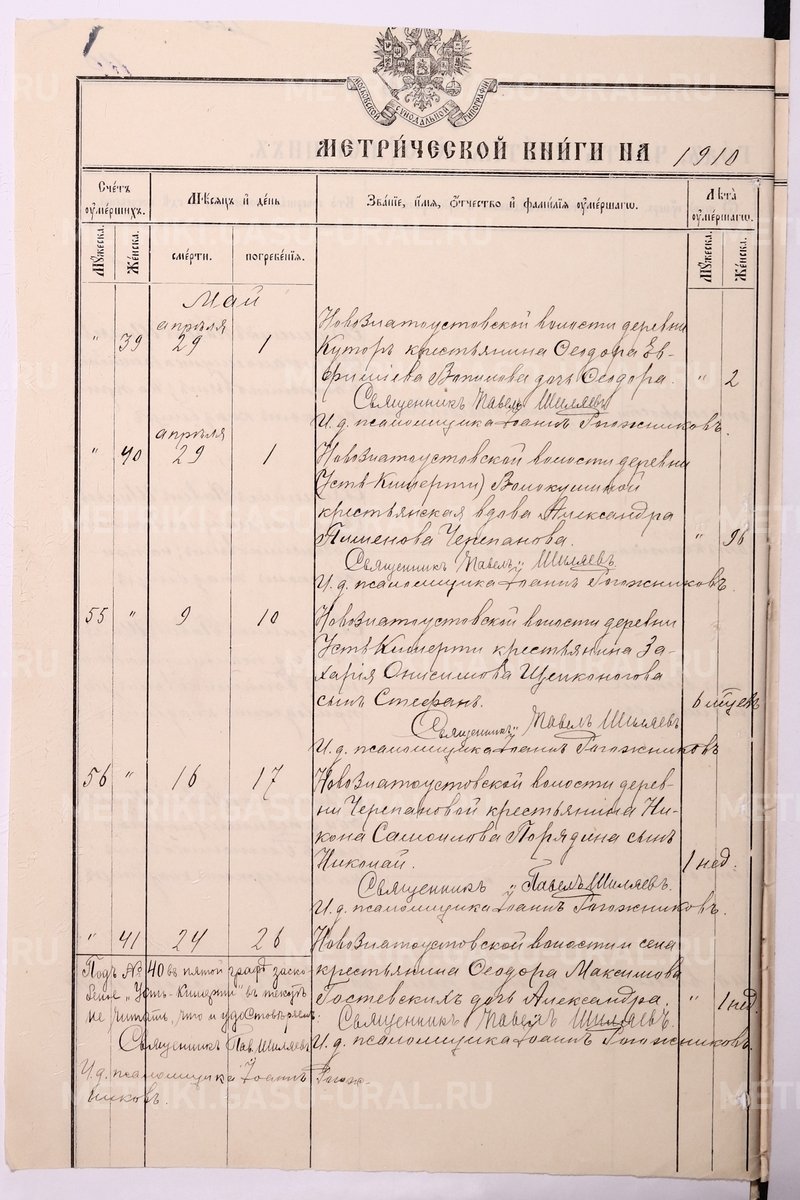 МОСКОВСКОЙ СѴНОДАЛЬНОЙ ТИПОГРАФІИ
МЕТРИ́ЧЕСКОЙ КНИ́ГИ НА 1910
Сче́тъ ᲂумéршихъ.
Мꙋ́жеска.
Же́нска.
Мѣ́сѧцъ и҆ де́нь
сме́рти.
погребе́нїѧ.
Зва́нїе, и҆́мѧ, ѻ҆́тчество и҆ фами́лїѧ ᲂумéршагѡ.
Лѣ́та ᲂумéршагѡ.
Мꙋ́жеска.
Же́нска.
Май
апрѣля
" 39 29 1 Новозлатоустовской волости деревни
Куторъ крестьянина Ѳеодора Ев-
фиміева Вопилова дочь Ѳеодора. " 2
Священникъ Павелъ Шиляевъ
И. д. псаломщика Іоаннъ Рогожниковъ.
апрѣля
" 40 29 1 Новозлатоустовской волости деревни
(Усть-Кишерти) Волокушиной
крестьянская вдова Александра
Пименова Черепанова. " 96
Священникъ Павелъ Шиляевъ
И. д. псаломщика Іоаннъ Рогожниковъ.
55 " 9 10 Новозлатоустовской волости деревни
Усть-Кишерти крестьянина За-
харія Онисимова Щелконогова
сынъ Стефанъ. 6 мѣцевъ
Священникъ Павелъ Шиляевъ
И. д. псаломщика Іоаннъ Рогожниковъ
56 " 16 17 Новозлатоустовской волости дерев-
ни Черепановой крестьянина Ни-
кона Самоилова Порядина сынъ
Николай. 1 нед.
Священникъ Павелъ Шиляевъ.
И. д. псаломщика Іоаннъ Рогожниковъ.
" 41 24 26 Новозлатоустовской волости и села
крестьянина Ѳеодора Максимова
Гостевскихъ дочь Александра. " 1 нед.
Священникъ Павелъ Шиляевъ.
И. д. псаломщика Іоаннъ Рогожниковъ.
Подъ № 40 въ пятой графѣ заско-
бленое „Усть-Кишерти" въ текстѣ
не читать, что и удостовѣряемъ
Священникъ Пав. Шиляевъ
И. д. псаломщика Іоаннъ Рогож-
никовъ.
METRIKI.GASO-URAL.RU